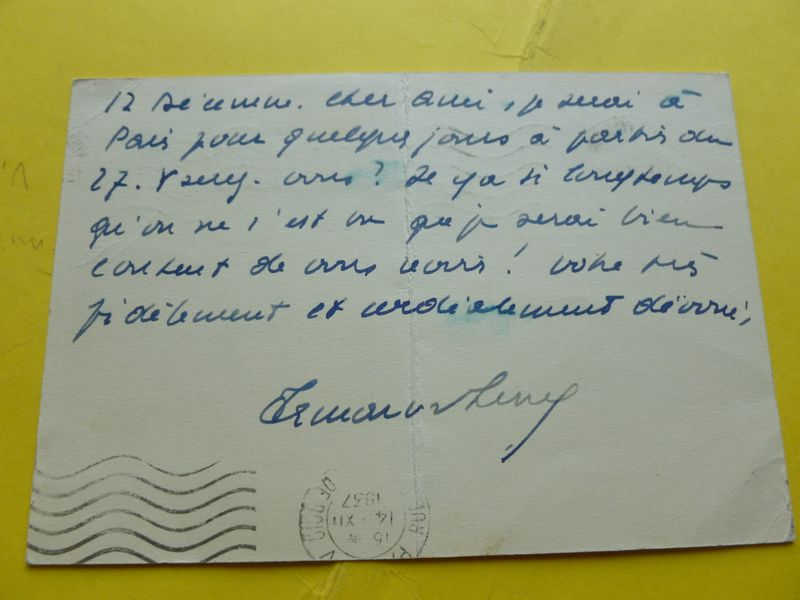 12 Décemm. Cher ami, je serai à
Paris pour quelques jours à partir du
27. Y serez-vous? Il y a si longtemps
qu'on ne s'est vu que je serai bien
content de vous revoir! Votre très
fidèlement et cordialement dévoué,
16 *
14 · XII
1937